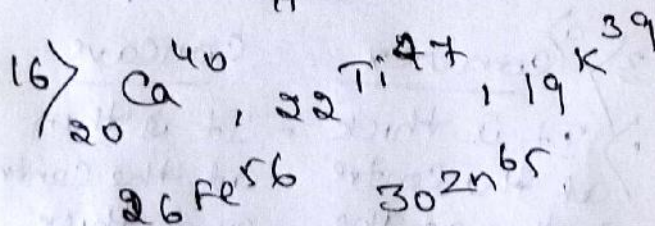 16) ₂₀Ca⁴⁰, ₂₂Ti⁴⁷, ₁₉K³⁹
₂₆Fe⁵⁶ ₃₀Zn⁶⁵.